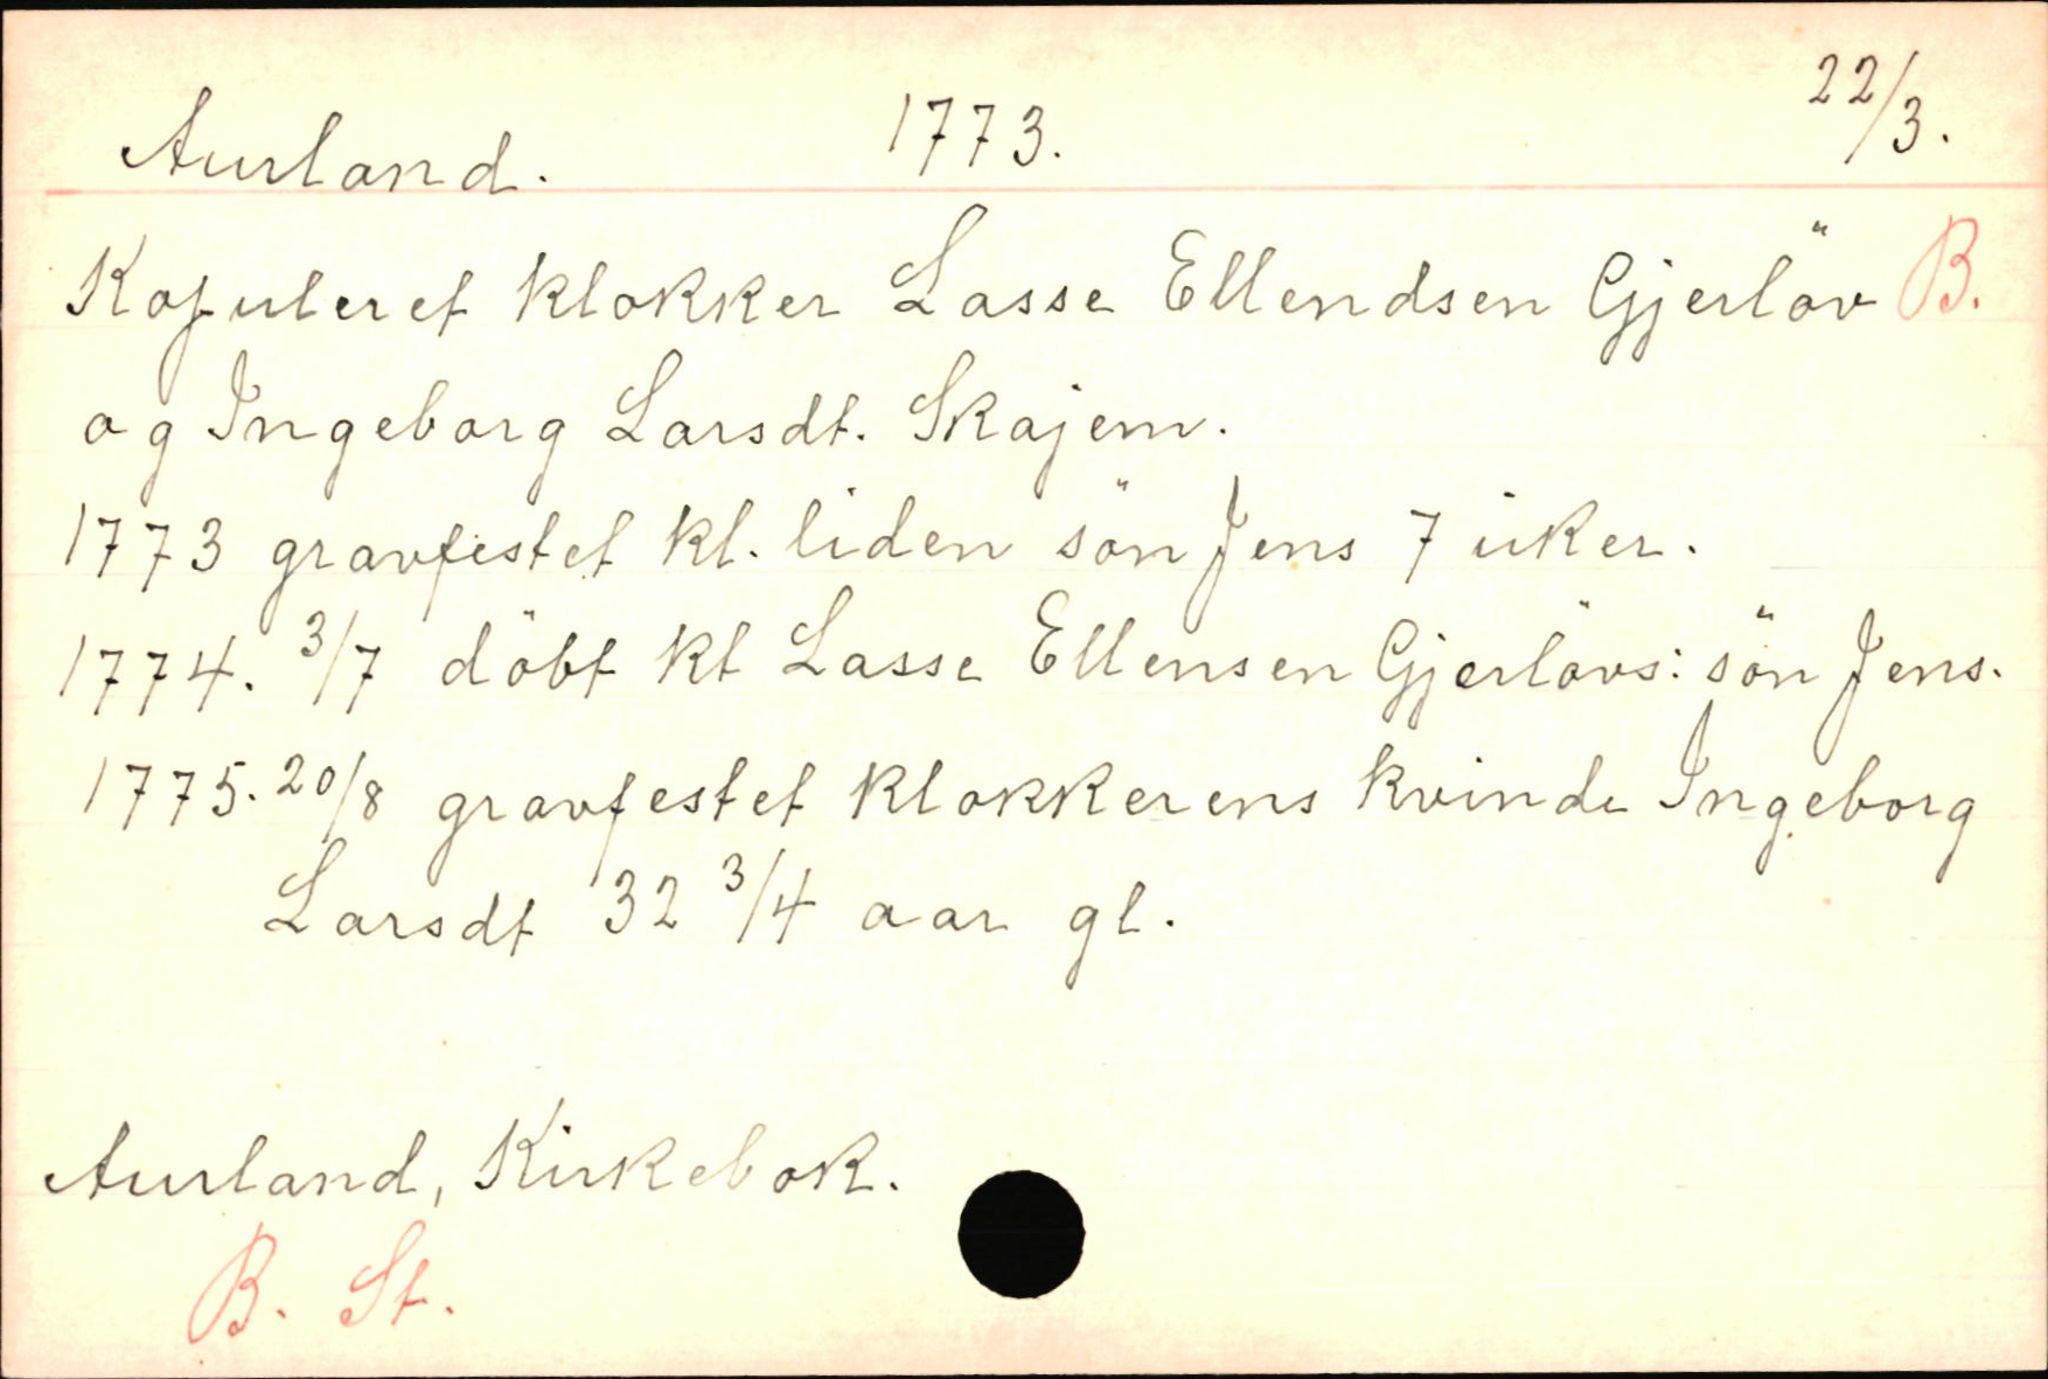 Aurland. 1773. 22/3.
Kopuleret klokker Lasse Ellendsen Gjerlöv B.
og Ingeborg Larsdt. Skajem.
1773 gravfestet kl. liden sön Jens 7 uker.
1774. 3/7 döbt kl Lasse Ellensen Gjerlövs: sön Jens.
1775. 20/8 gravfestet klokkerens kvinde Ingeborg
Larsdt 32 3/4 aar gl.
Aurland, Kirkebok.
B. St.